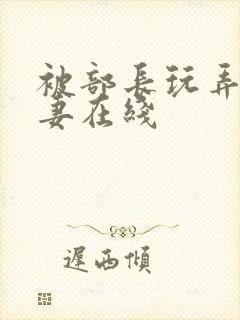 被部长玩弄
妻在线
遲西傾